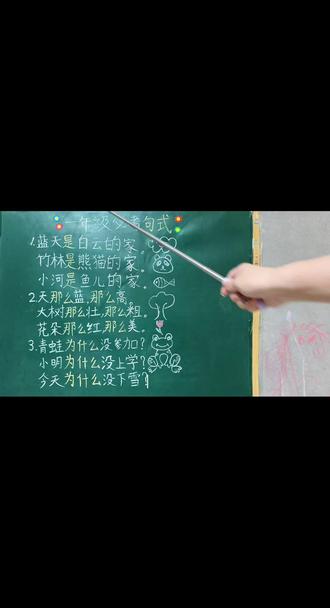 一年级必考句式
1.蓝天是白云的家。
竹林是熊猫的家。
小河是鱼儿的家。
2.天那么蓝,那么高。
大树那么壮,那么粗。
花朵那么红,那么美。
3.青蛙为什么没参加?
小明为什么没上学?
今天为什么没下雪?